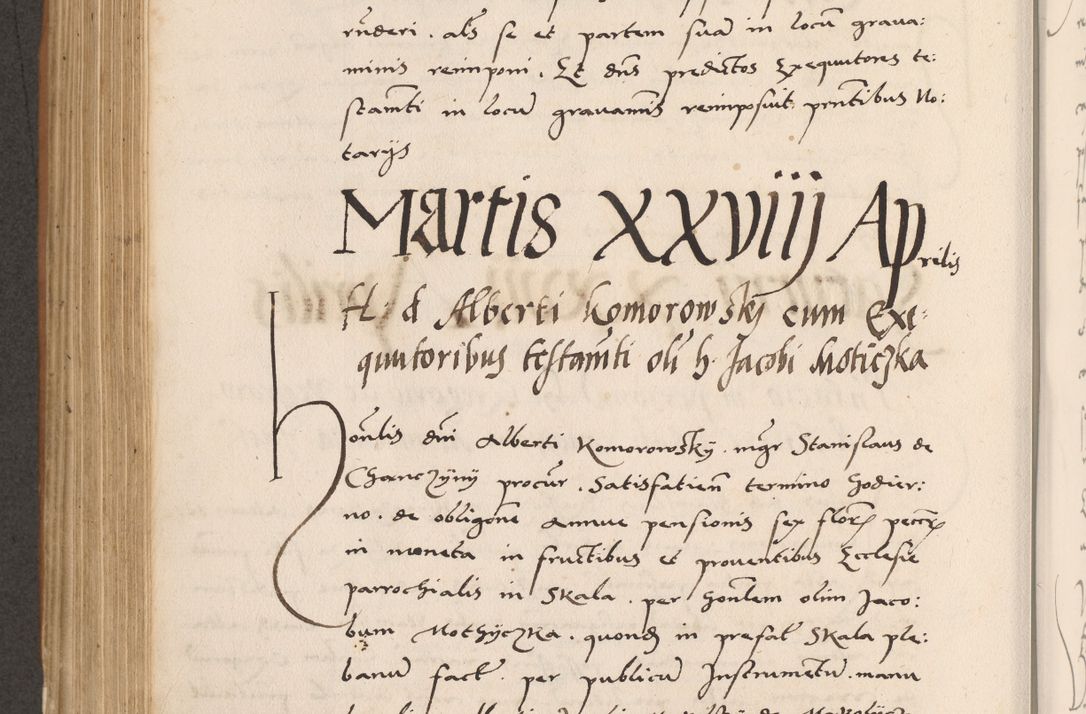 rñderi . als se et partem suã in locũ grava:
minis reimponi . Et dñs predictos Exequutores te:
stam̃ti in locũ gravamĩs reimposuit pñtibus No:
tarijs
Martis XXVIIJ Aprilis
H. d Alberti Komorowskj cum Exe:
quutoribus testam̃ti oli h. Jacobi Moticzka
Honlis dñi Alberti Komorowsky . mgr Stanislaus de
Chanczyny procur̃ . Satisfatieñ termino hodier:
no . de obligoñe annue pensionis sex flor pecc
in moneta in fructibus et proventibus Ecclesie
parrochialis in Skala . per honlem olim Jaco:
bum Mothyczka . quond in prefat Skala ple:
banũ fact . per publicũ Instrumentũ . manu